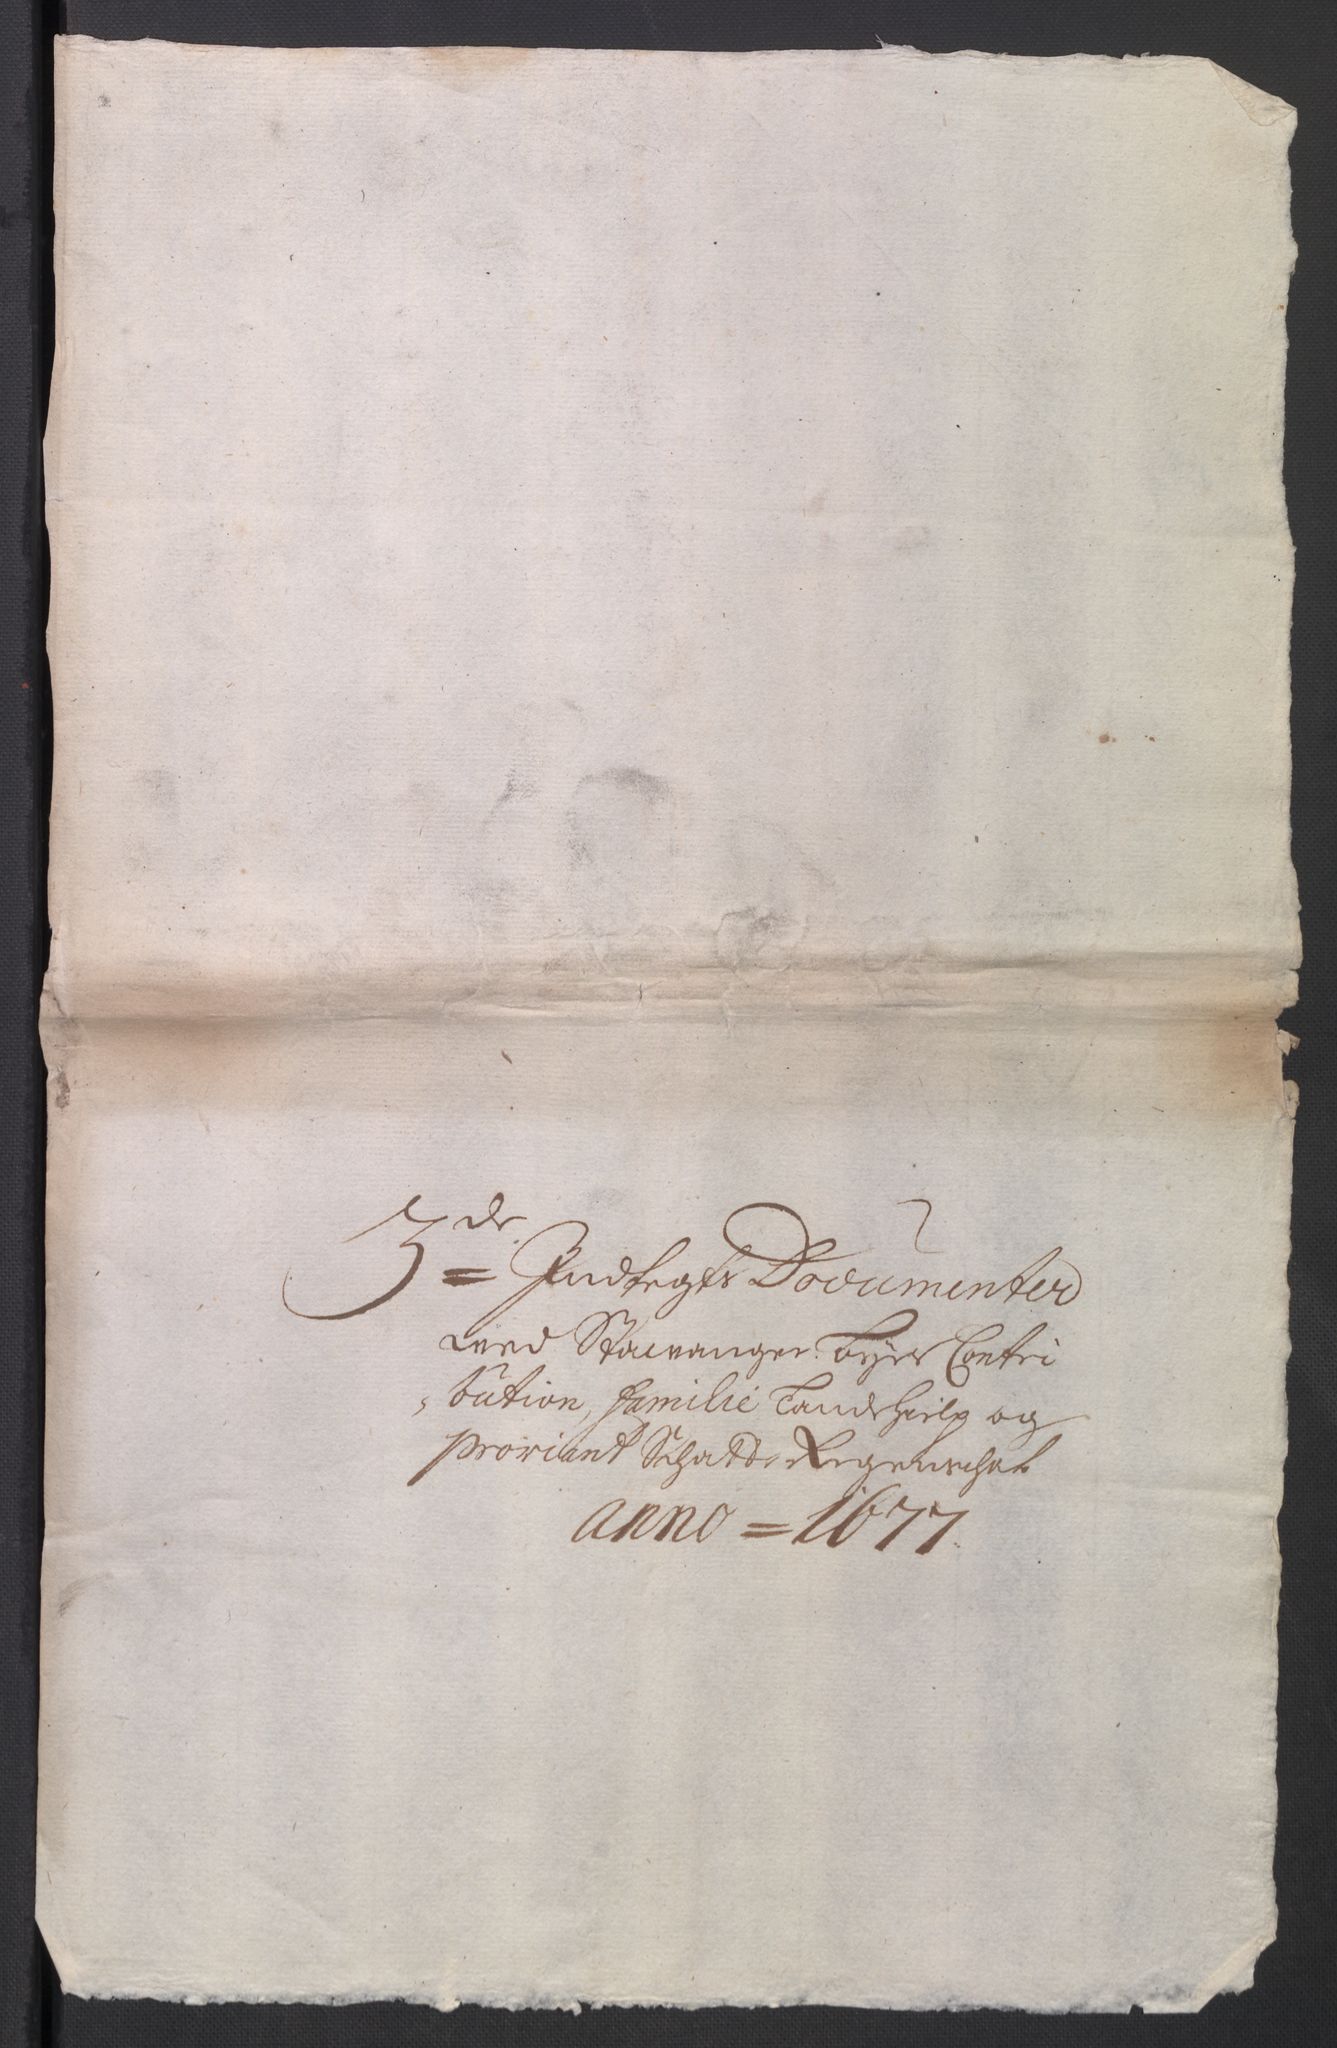 3de = Indtegts Documenter
wed Stawanger Byes Contri
bution, familie Landehielp og
proviant Schatts Regenschab
anno = 1677.